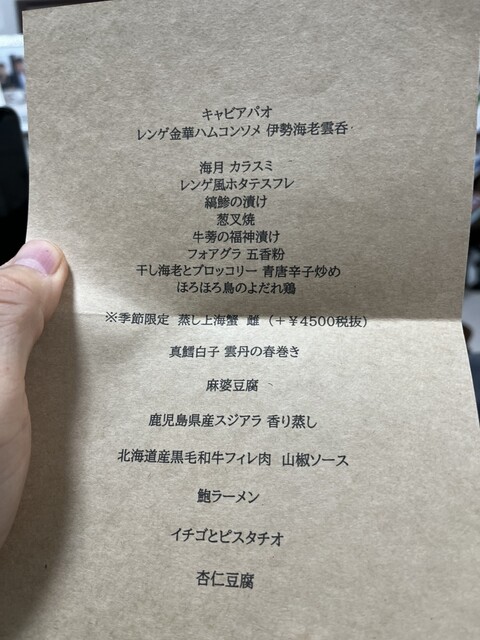 キャビアパオ
レンゲ金華ハムコンソメ 伊勢海老雲呑
海月 カラスミ
レンゲ風ホタテスフレ
縞鯵の漬け
葱叉焼
牛蒡の福神漬け
フォアグラ 五香粉
干し海老とブロッコリー 青唐辛子炒め
ほろほろ鳥のよだれ鶏
※季節限定 蒸し上海蟹 雌 (+￥4500税抜)
真鱈白子 雲丹の春巻き
麻婆豆腐
鹿児島県産スジアラ 香り蒸し
北海道産黒毛和牛フィレ肉 山椒ソース
鮑ラーメン
イチゴとピスタチオ
杏仁豆腐